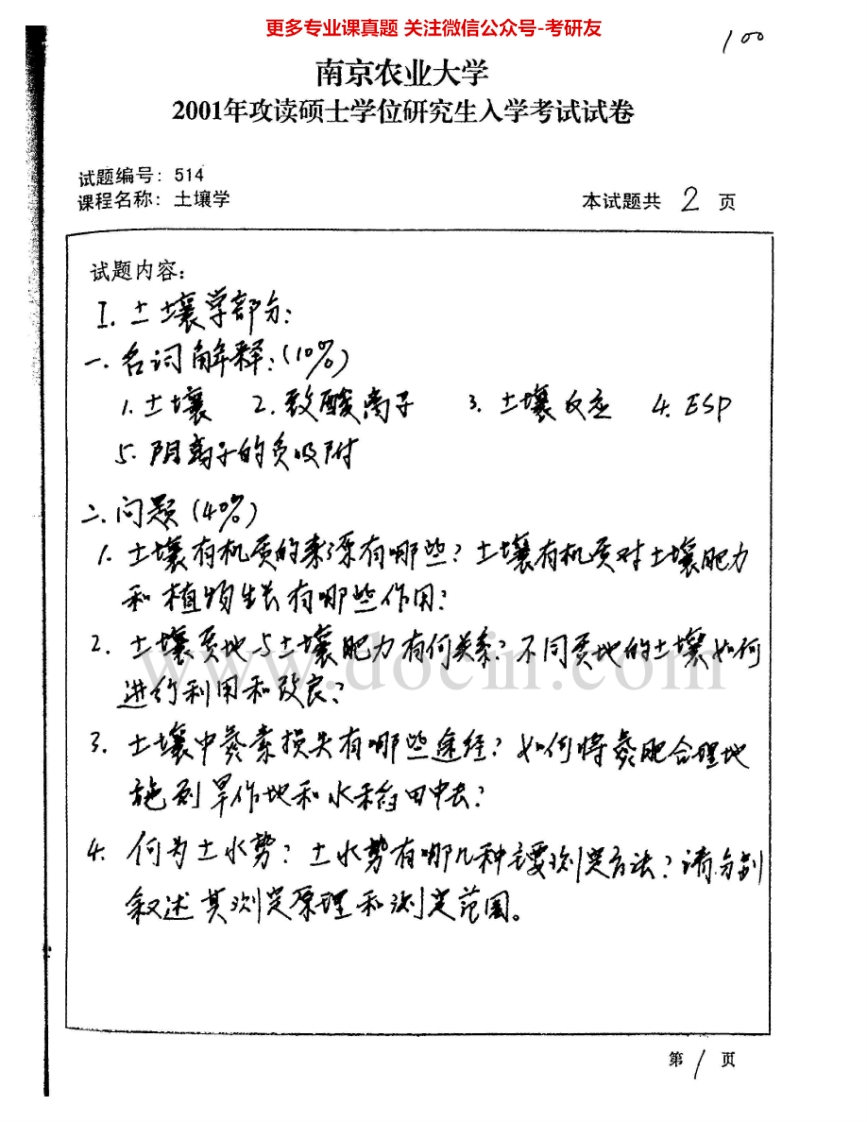 更多专业课真题 关注微信公众号-考研友
100
南京农业大学
2001年攻读硕士学位研究生入学考试试卷
试题编号：514
课程名称：土壤学
本试题共 2 页
试题内容：
I. 土壤学部分：
一. 名词解释：(10%)
1. 土壤 2. 致酸离子 3. 土壤反应 4. ESP
5. 阴离子的负吸附
二. 问题 (40%)
1. 土壤有机质的来源有哪些？土壤有机质对土壤肥力
和植物生长有哪些作用？
2. 土壤质地与土壤肥力有何关系？不同质地的土壤如何
进行利用和改良？
www.docin.com
3. 土壤中氮素损失有哪些途经？如何将氮肥合理地
施到旱作地和水稻田中去？
4. 何为土水势？土水势有哪几种主要测定方法？请分别
叙述其测定原理和测定范围。
第 1 页